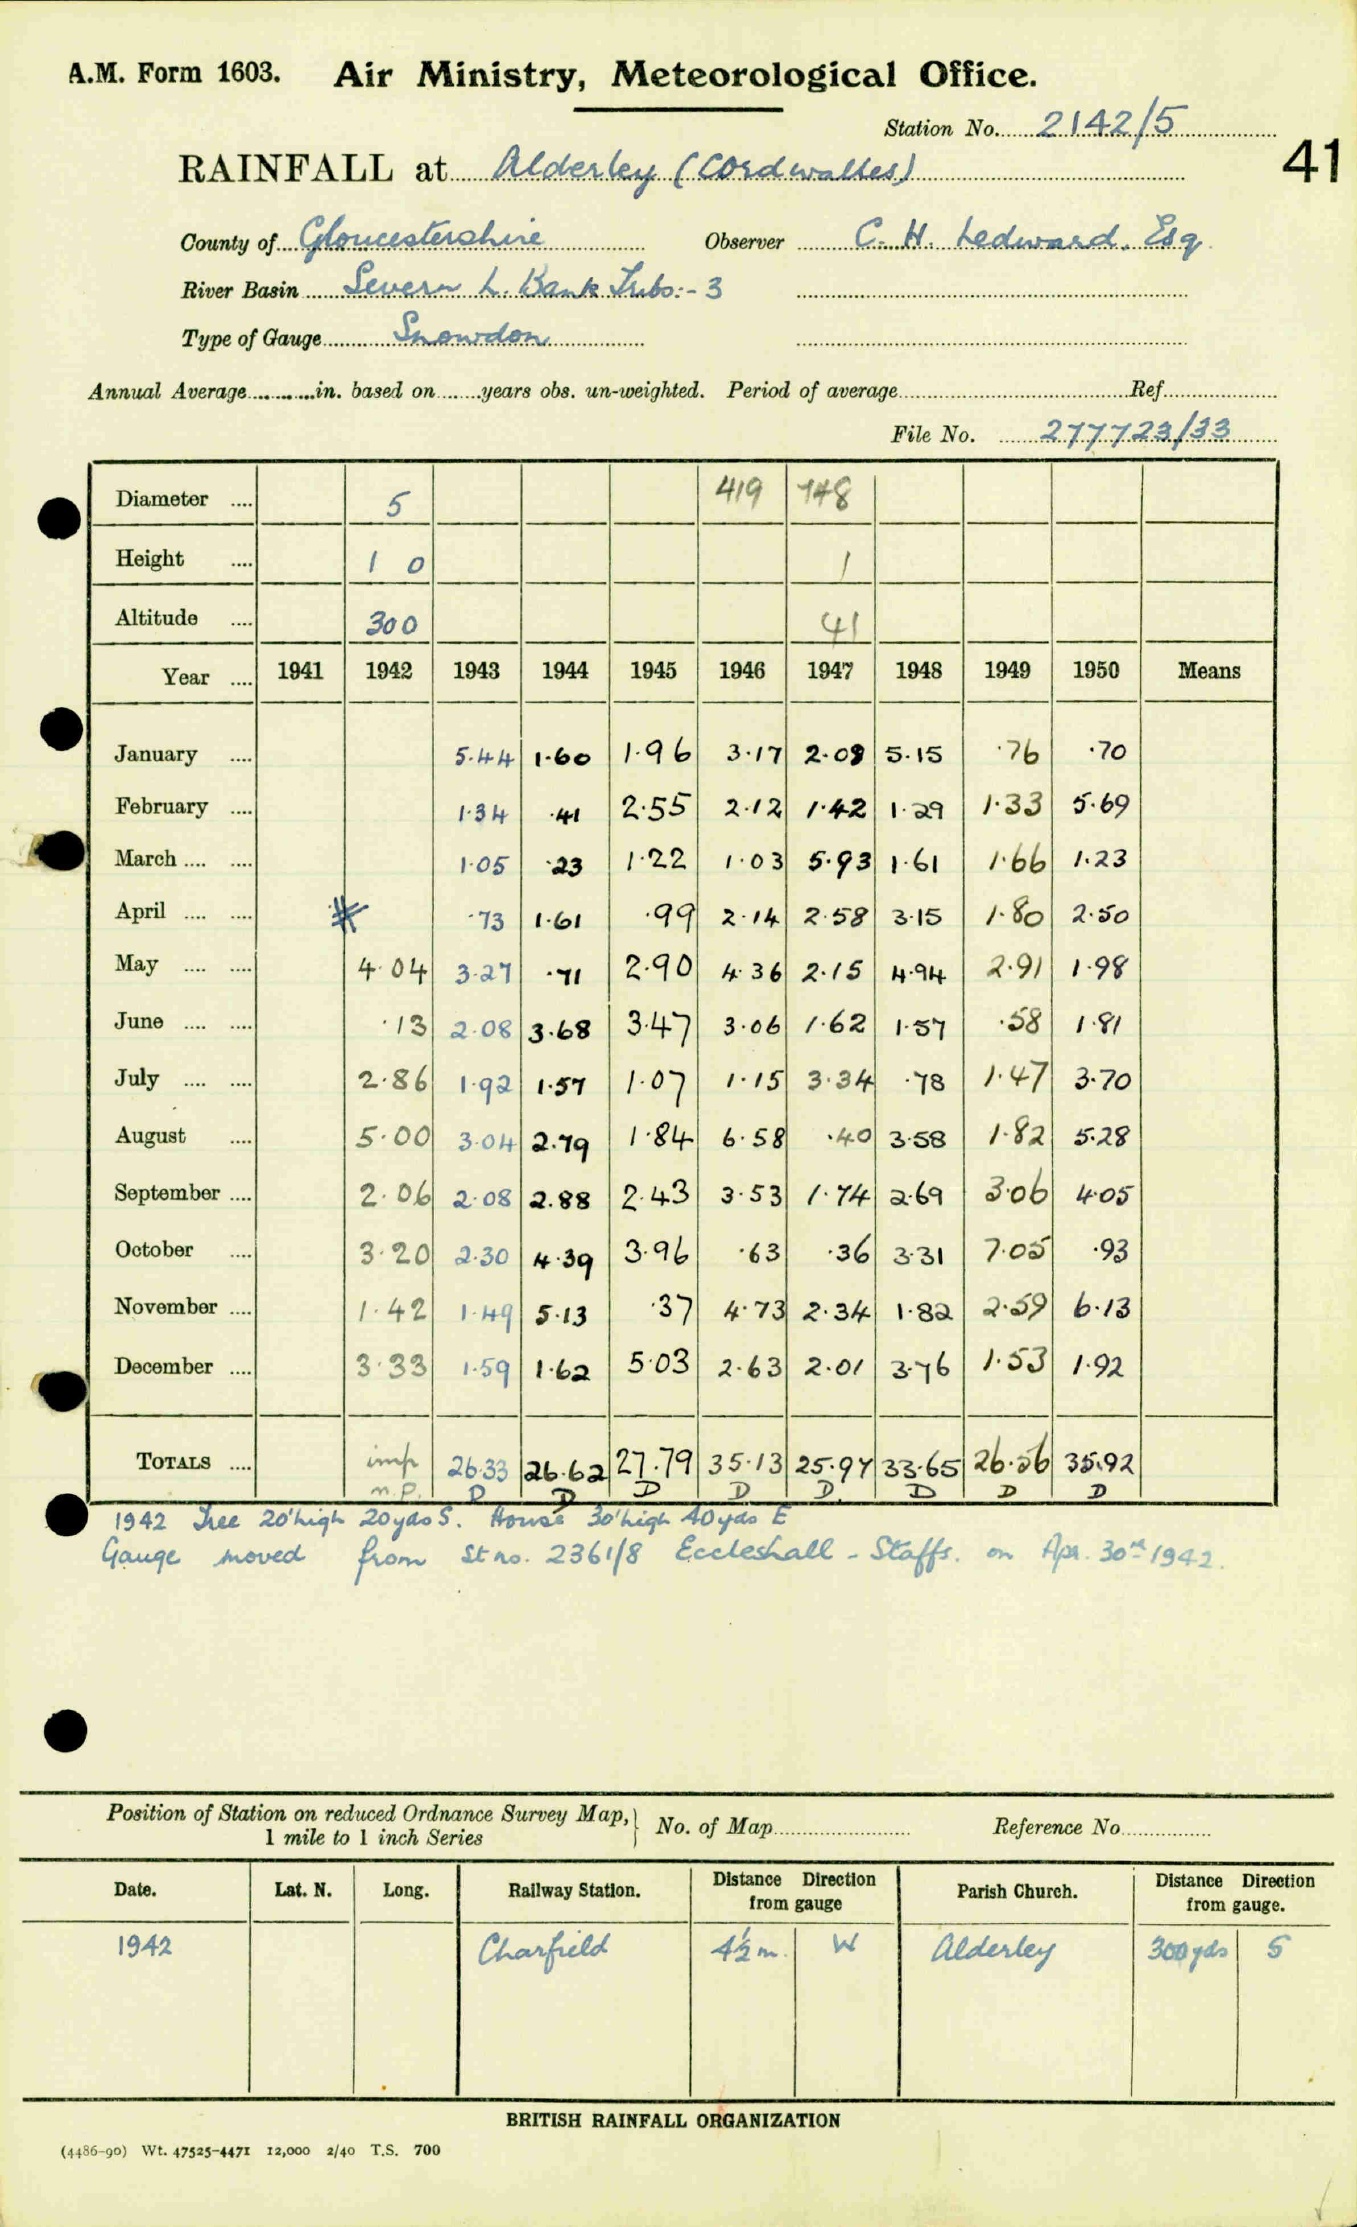 A.M. Form 1603. Air Ministry, Meteorological Office.
Station No. 2142/5
41
RAINFALL at Alderley (Cordwalles)
County of Gloucestershire Observer C. H. Ledward, Esq
River Basin Severn L. Bank Tribs:- 3
Type of Gauge Snowdon
Annual Average in. based on years obs. un-weighted. Period of average Ref.
File No. 277723/33
Diameter 5 419 748
Height 1 0 1
Altitude 300 41
Year 1941 1942 1943 1944 1945 1946 1947 1948 1949 1950 Means
January 5.44 1.60 1.96 3.17 2.08 5.15 .76 .70
February 1.34 .41 2.55 2.12 1.42 1.29 1.33 5.69
March 1.05 .23 1.22 1.03 5.93 1.61 1.66 1.23
April .73 1.61 .99 2.14 2.58 3.15 1.80 2.50
May 4.04 3.27 .71 2.90 4.36 2.15 4.94 2.91 1.98
June .13 2.08 3.68 3.47 3.06 1.62 1.57 .58 1.81
July 2.86 1.92 1.57 1.07 1.15 3.34 .78 1.47 3.70
August 5.00 3.04 2.79 1.84 6.58 .40 3.58 1.82 5.28
September 2.06 2.08 2.88 2.43 3.53 1.74 2.69 3.06 4.05
October 3.20 2.30 4.39 3.96 .63 .36 3.31 7.05 .93
November 1.42 1.49 5.13 .37 4.73 2.34 1.82 2.59 6.13
December 3.33 1.59 1.62 5.03 2.63 2.01 3.76 1.53 1.92
TOTALS imp 26.33 26.62 27.79 35.13 25.97 33.65 26.56 35.92
n.p. D D D D D D D D
1942 Tree 20' high 20yds S. House 30' high 40yds E
Gauge moved from St no. 2361/8 Eccleshall - Staffs. on Apr. 30th 1942.
Position of Station on reduced Ordnance Survey Map, 1 mile to 1 inch Series No. of Map Reference No
Date. Lat. N. Long. Railway Station. Distance Direction from gauge Parish Church. Distance Direction from gauge.
1942 Charfield 4½ m. W Alderley 300yds S
BRITISH RAINFALL ORGANIZATION
(4486-90) Wt. 47525-4471 12,000 2/40 T.S. 700